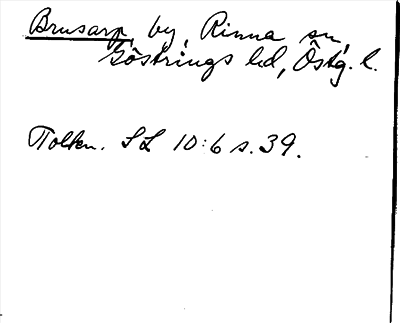 Brusarp, by, Rinna sn,
Göstrings hd, Östg. l.
Tolkn. SL 10:6 s. 39.